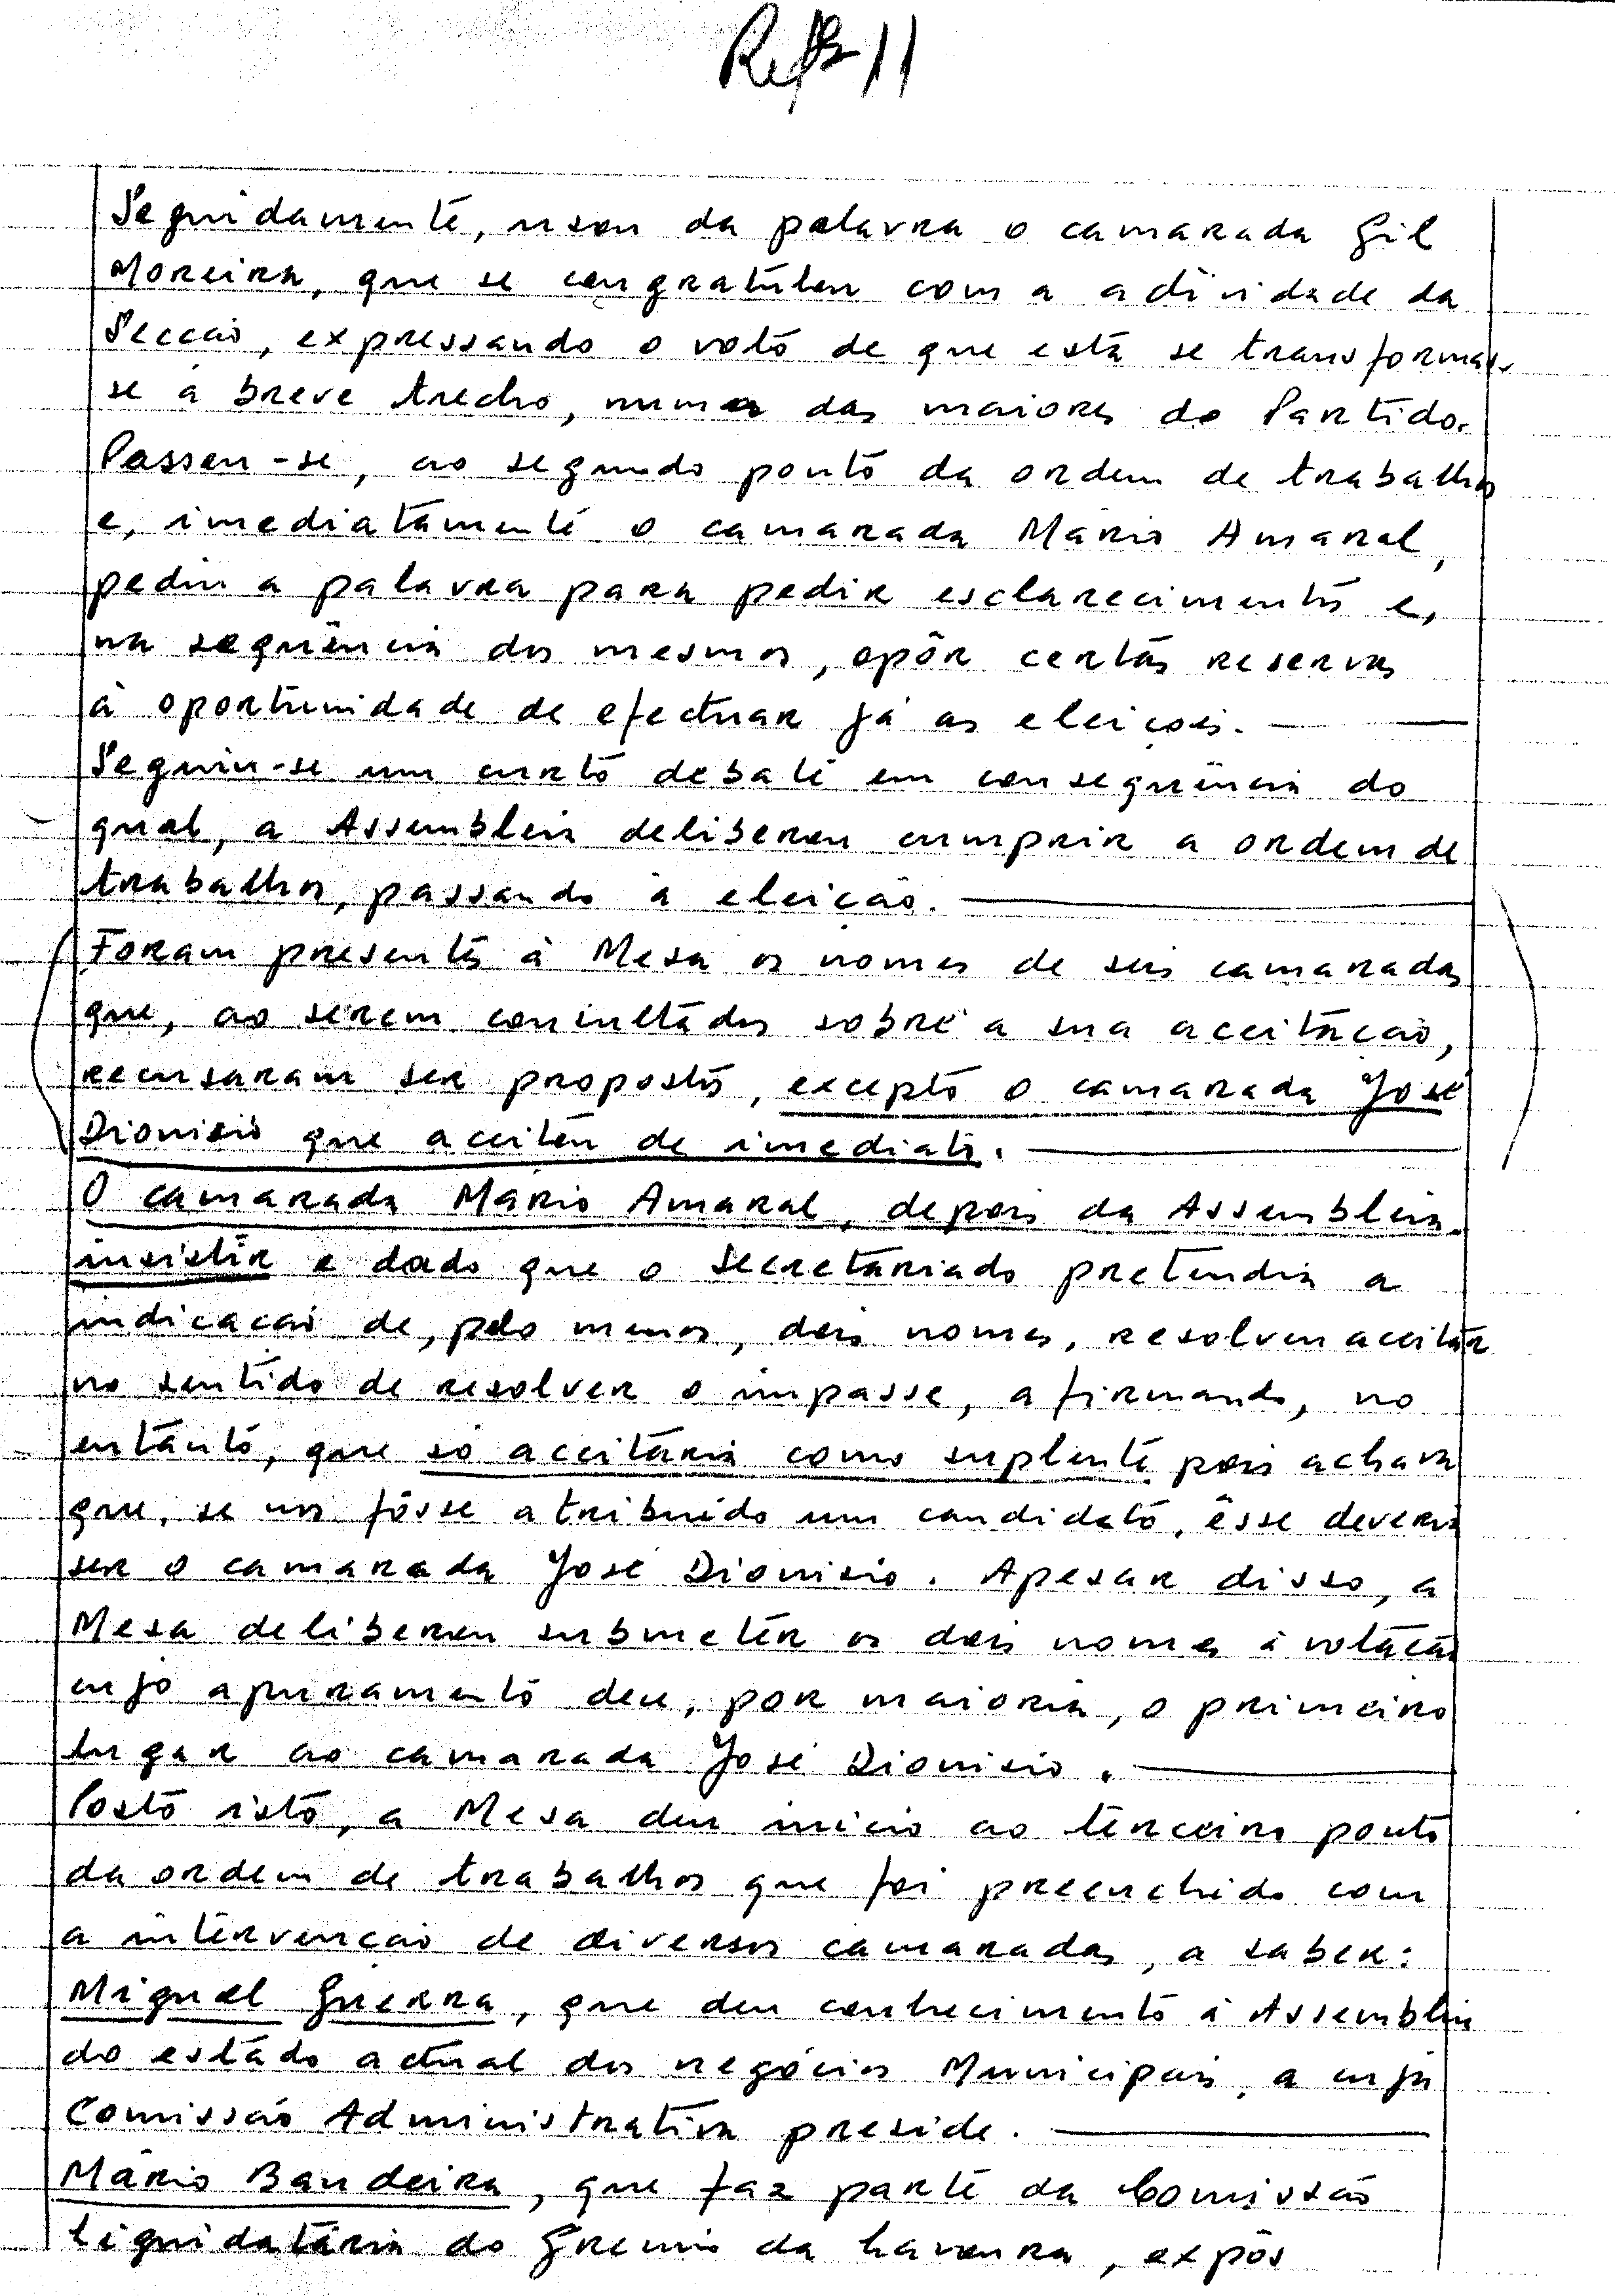 Seguidamente, usou da palavra o camarada Gil
Moreira, que se congratulou com a actividade da
Secção, expressando o voto de que esta se transformas-
se a breve trecho, numa das maiores do Partido.
Passou-se, ao segundo ponto da ordem de trabalhos
e, imediatamente o camarada Mário Amaral,
pediu a palavra para pedir esclarecimentos e,
na sequência dos mesmos, opôr certas reservas
à oportunidade de efectuar já as eleições.
Seguiu-se um curto debate em consequência do
qual, a Assembleia deliberou cumprir a ordem de
trabalhos, passando à eleição.
Foram presentes à Mesa os nomes de seis camaradas
que, ao serem consultados sobre a sua aceitação,
recusaram ser propostos, excepto o camarada José
Dionisio que aceitou de imediato.
O camarada Mário Amaral, depois da Assembleia
insistir e dado que o Secretariado pretendia a
indicação de, pelo menos, dois nomes, resolveu aceitar
no sentido de resolver o impasse, afirmando, no
entanto, que só aceitaria como suplente pois achava
que, se nos fôsse atribuído um candidato, êsse deveria
ser o camarada José Dionisio. Apesar disso, a
Mesa deliberou submeter os dois nomes à votação
cujo apuramento deu, por maioria, o primeiro
lugar ao camarada José Dionisio.
Posto isto, a Mesa deu início ao terceiro ponto
da ordem de trabalhos que foi preenchido com
a intervenção de diversos camaradas, a saber:
Miguel Guerra, que deu conhecimento à Assembleia
do estado actual dos negócios Municipais, a cuja
Comissão Administrativa preside.
Mário Bandeira, que faz parte da Comissão
Liquidatária do Grémio da Lavoura, expôs